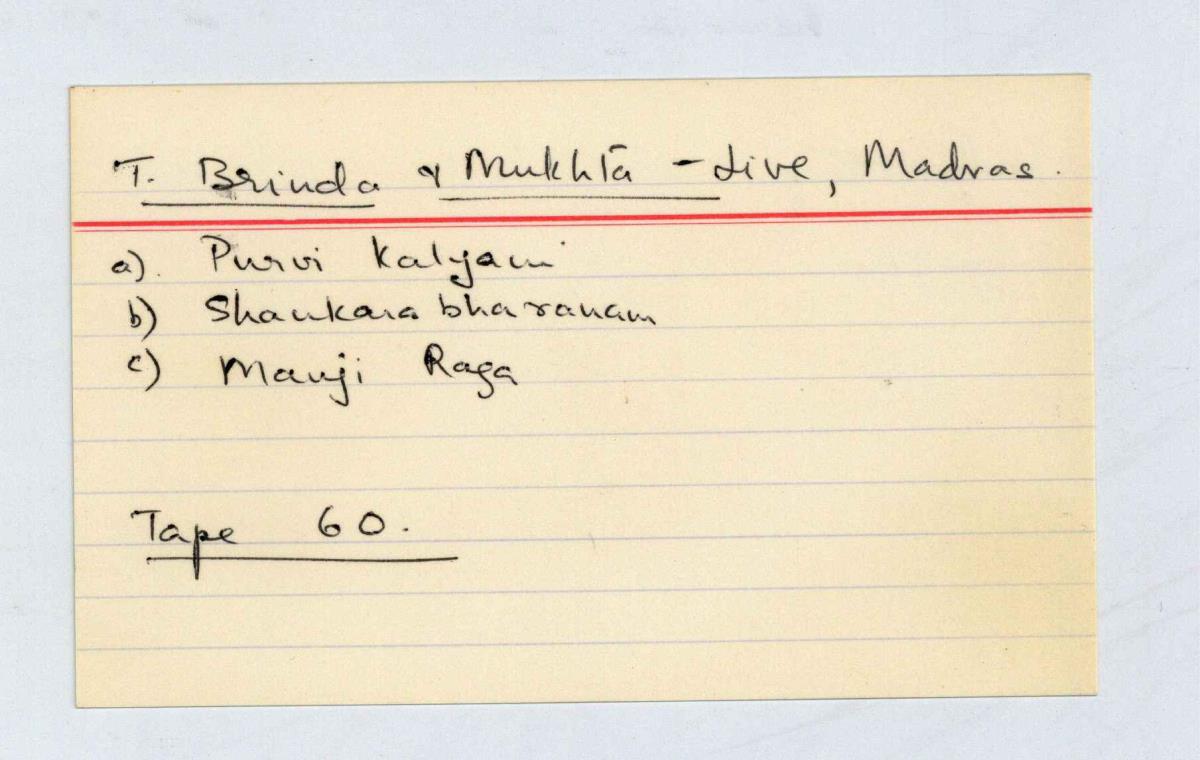 T. Brinda & Mukhta - Live, Madras.
a). Purvi Kalyani
b) Shankarabharanam
c) Manji Raga
Tape 60.